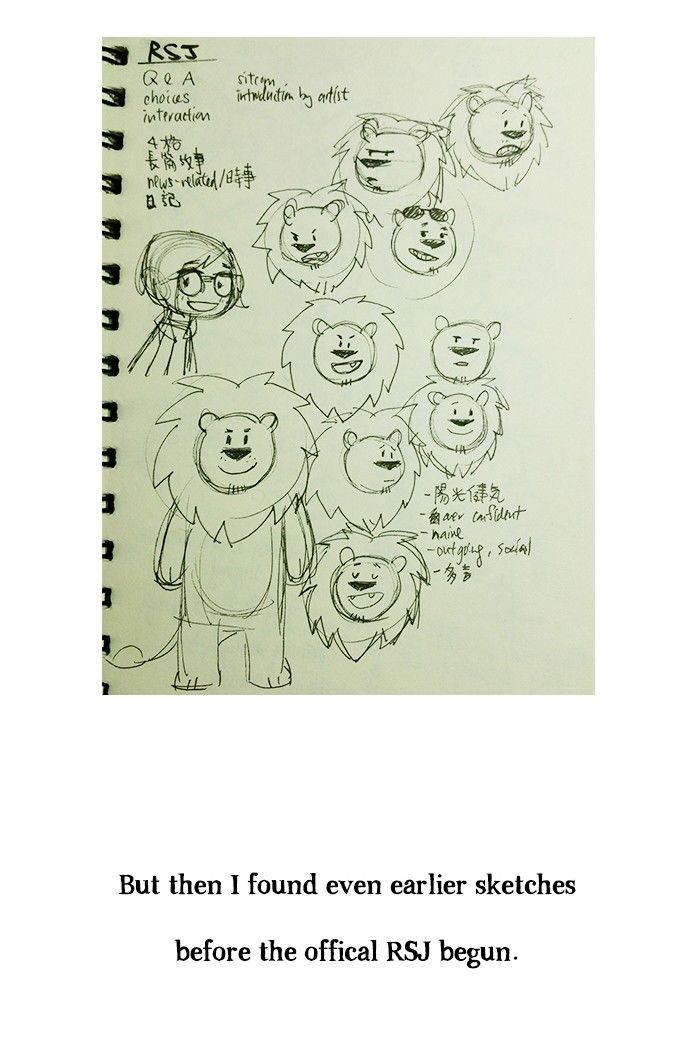 RSJ
Q & A
choices
interaction
sitcom
introduction by artist
4格
長篇故事
news-related/時事
日記
-陽光健気
over confident
-naive
-outgoing, social
-多言
But then I found even earlier sketches
before the offical RSJ begun.